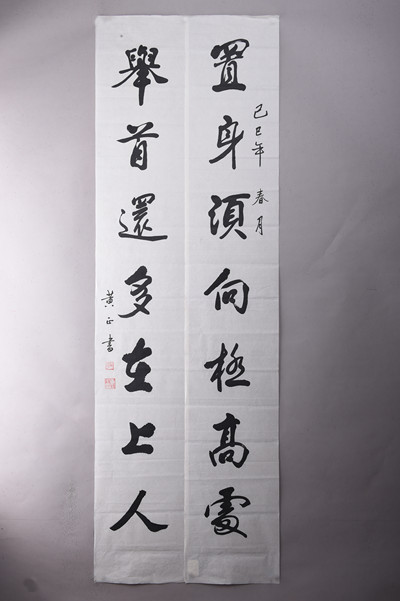 置身須向極高處
己巳年 春月
舉首還多在上人
黄正書